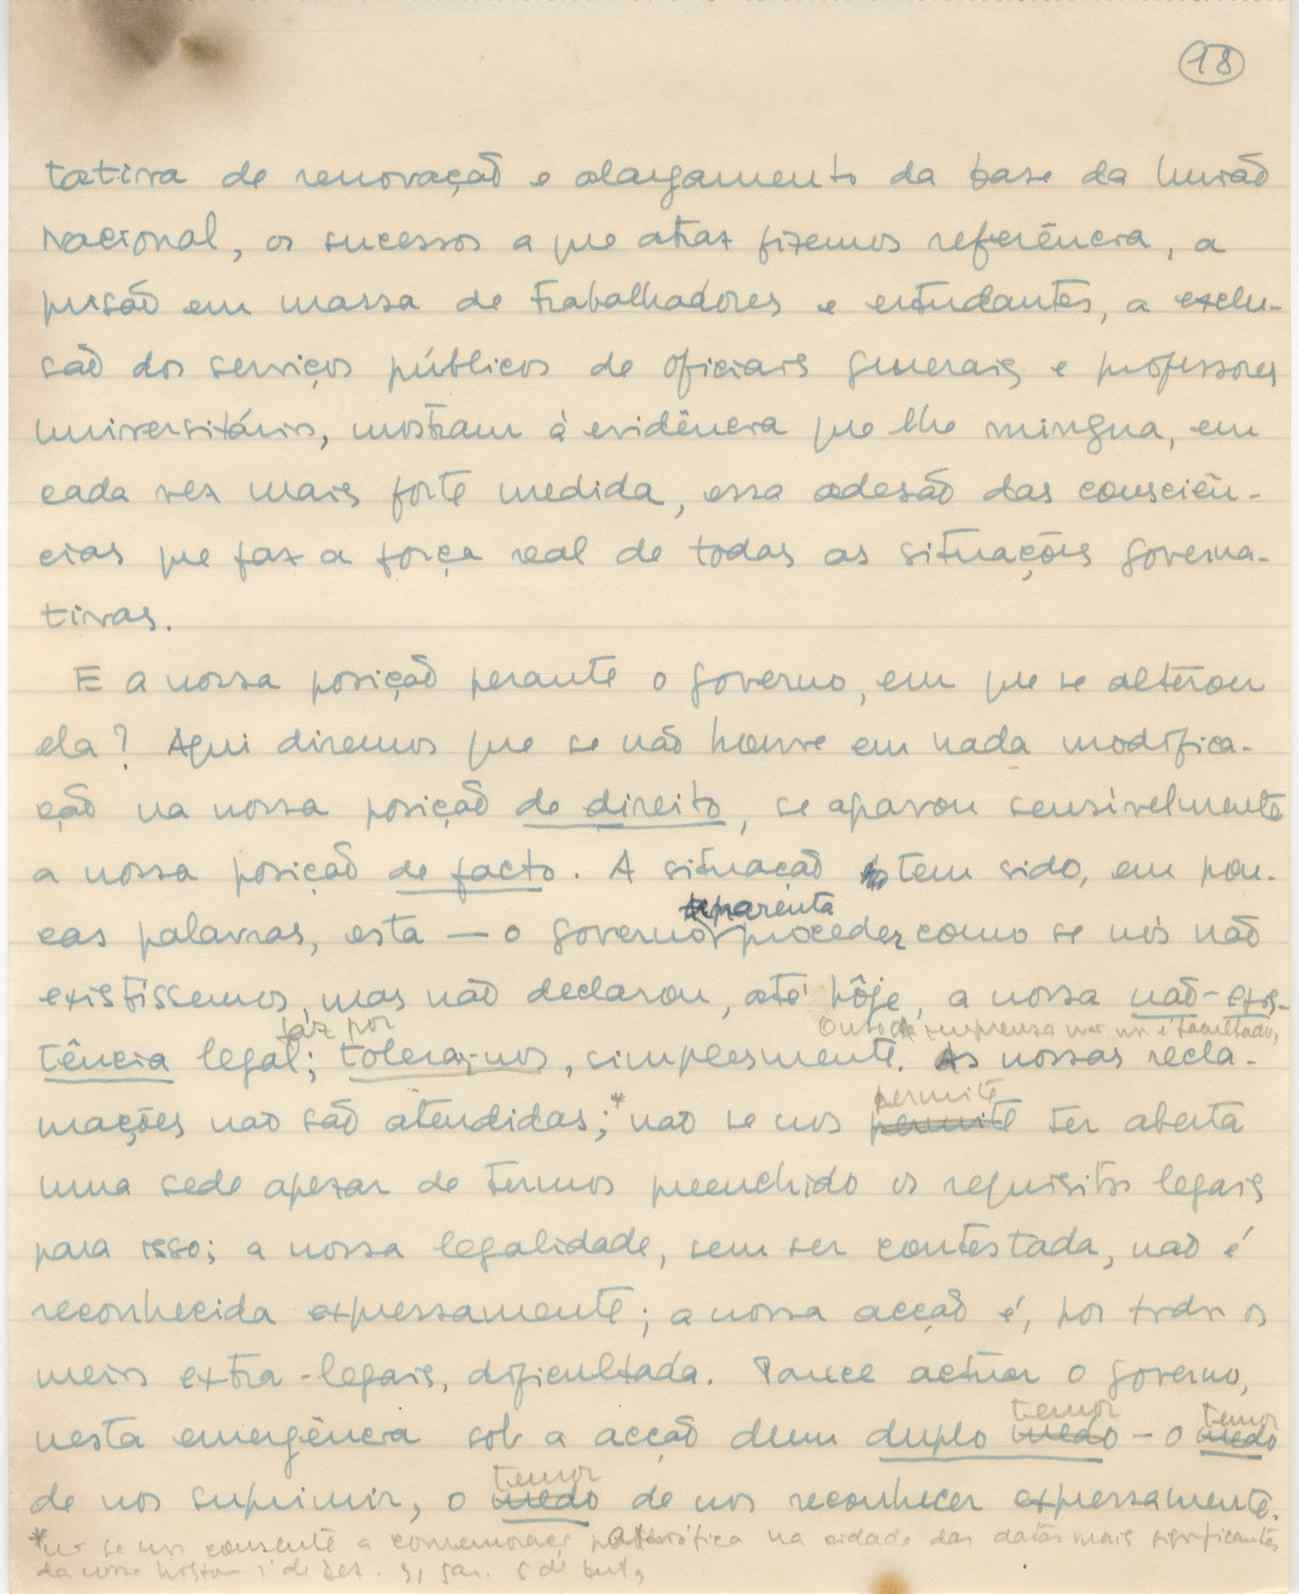 18
tativa de renovação e alargamento da base da União
Nacional, os sucessos a que atraz fizemos referência, a
prisão em massa de trabalhadores e estudantes, a exclu-
são dos serviços públicos de oficiais generais e professores
universitários, mostram à evidência que lhe mingua, em
cada vez mais forte medida, essa adesão das consciên-
cias que faz a força real de todas as situações governa-
tivas.
E a nossa posição perante o governo, em que se alterou
ela? Aqui diremos que se não houve em nada modifica-
ção na nossa posição de direito, se agravou sensívelmente
a nossa posição de facto. A situação tem sido, em pou-
aparenta
cas palavras, esta — o governo proceder como se nós não
existíssemos, mas não declarou, até hôje, a nossa não-exis-
faz por
Ouso da imprensa não nos é facultado,
tência legal; tolerar-nos, simplesmente. As nossas recla-
permite
mações não são atendidas;* não se nos permite ter aberta
uma sede apezar de termos preenchido os requisitos legais
para isso; a nossa legalidade, sem ser contestada, não é
reconhecida expressamente; a nossa acção é, por todos os
meios extra-legais, dificultada. Parece actuar o governo,
temor temor
nesta emergência sob a acção dum duplo medo — o medo
temor
de nos suprimir, o medo de nos reconhecer expressamente.
*não se nos consente a comemoração patriótica na cidade das datas mais significantes
da nossa história 1º de Dez. 31 Jan. 5 de Out,